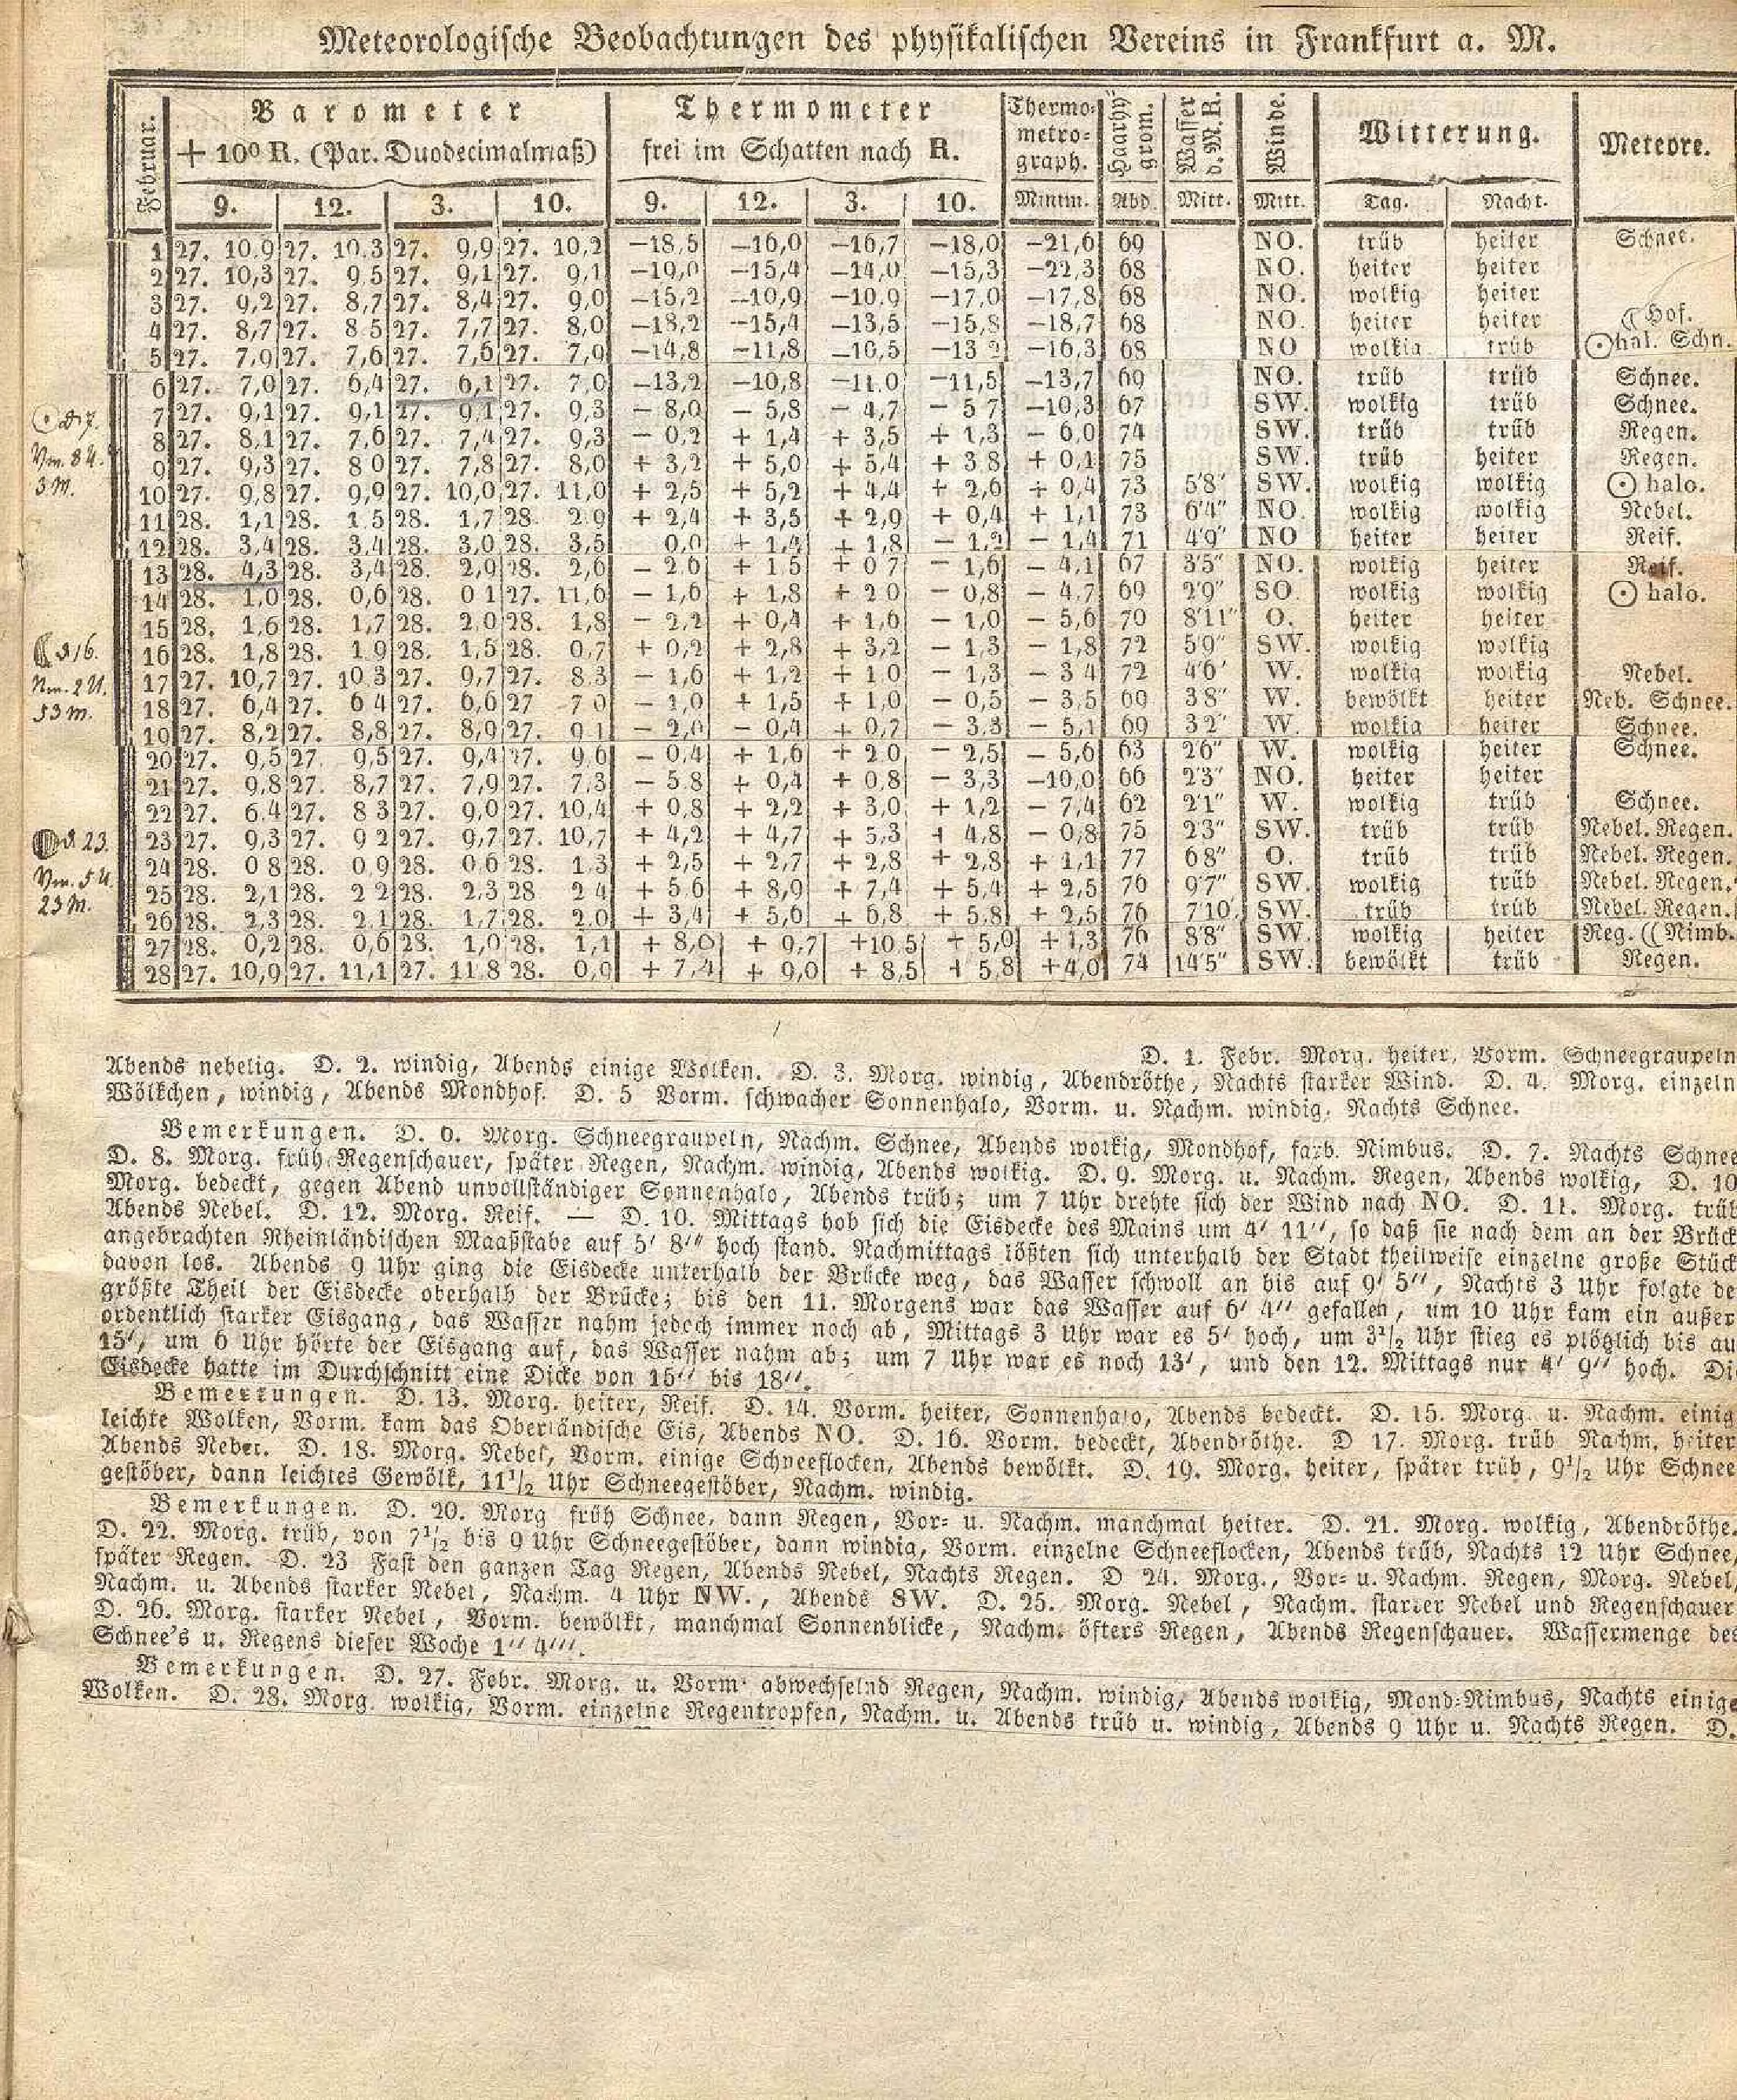 Meteorologische Beobachtungen des physikalischen Vereins in Frankfurt a. M.
Februar. Barometer Thermometer Thermo= Haarhy Wasser Winde. Witterung. Meteore.
+ 10⁰ R. (Par. Duodecimalmaß) frei im Schatten nach R. metro= grom. d. M. R.
graph.
9. 12. 3. 10. 9. 12. 3. 10. Minim. Abd. Mitt. Mitt. Tag. Nacht.
1 27. 10.9 27. 10.3 27. 9,9 27. 10,2 −18,5 −16,0 −16,7 −18,0 −21,6 69 NO. trüb heiter Schnee.
2 27. 10,3 27. 9 5 27. 9,1 27. 9,1 −19,0 −15,4 −14,0 −15,3 −22,3 68 NO. heiter heiter
3 27. 9,2 27. 8,7 27. 8,4 27. 9,0 −15,2 −10,9 −10.9 −17,0 −17,8 68 NO. wolkig heiter
4 27. 8,7 27. 8 5 27. 7,7 27. 8,0 −18,2 −15,4 −13,5 −15,8 −18,7 68 NO. heiter heiter ☾ Hof.
5 27. 7,9 27. 7,6 27. 7,5 27. 7,9 −14,8 −11,8 −10,5 −13 2 −16,3 68 NO wolkig trüb ☉ hal. Schn.
6 27. 7,0 27. 6,4 27. 6,1 27. 7,0 −13,2 −10,8 −11.0 −11,5 −13,7 69 NO. trüb trüb Schnee.
7 27. 9,1 27. 9,1 27. 9,1 27. 9,3 − 8,0 − 5,8 − 4,7 − 5 7 −10,3 67 SW. wolkig trüb Schnee.
☉ d 7.
8 27. 8,1 27. 7,6 27. 7,4 27. 9,3 − 0,2 + 1,4 + 3,5 + 1,3 − 6,0 74 SW. trüb trüb Regen.
Vm. 8 U.
9 27. 9,3 27. 8 0 27. 7,8 27. 8,0 + 3,2 + 5,0 + 5,4 + 3 8 + 0,1 75 SW. trüb heiter Regen.
3 M.
10 27. 9,8 27. 9,9 27. 10,0 27. 11,0 + 2,5 + 5,2 + 4,4 + 2,6 + 0,4 73 5'8" SW. wolkig wolkig ☉ halo.
11 28. 1,1 28. 1 5 28. 1,7 28. 2 9 + 2,4 + 3,5 + 2,9 + 0,4 + 1,1 73 6'4" NO. wolkig wolkig Nebel.
12 28. 3,4 28. 3,4 28. 3,0 28. 3,5 0,0 + 1,4 + 1,8 − 1,2 − 1,4 71 4'9" NO heiter heiter Reif.
13 28. 4,3 28. 3,4 28. 2,9 28. 2,6 − 2 6 + 1 5 + 0 7 − 1,6 − 4,1 67 3'5" NO. wolkig heiter Reif.
14 28. 1,0 28. 0,6 28. 0 1 27. 11,6 − 1,6 + 1,8 + 2 0 − 0,8 − 4,7 69 2'9" SO. wolkig wolkig ☉ halo.
15 28. 1,6 28. 1,7 28. 2.0 28. 1,8 − 2,2 + 0,4 + 1,6 − 1,0 − 5,6 70 8'11" O. heiter heiter
16 28. 1,8 28. 1 9 28. 1,5 28. 0,7 + 0,2 + 2,8 + 3,2 − 1,3 − 1,8 72 5'9" SW. wolkig wolkig
d 16.
17 27. 10,7 27. 10 3 27. 9,7 27. 8,3 − 1,6 + 1,2 + 1 0 − 1,3 − 3 4 72 4'6' W. wolkig wolkig Nebel.
Nm. 2 U.
18 27. 6,4 27. 6 4 27. 6,6 27 7 0 − 1,0 + 1,5 + 1,0 − 0,5 − 3,5 69 3 8" W. bewölkt heiter Neb. Schnee.
53 m.
19 27. 8,2 27. 8,8 27. 8,9 27. 9 1 − 2,0 − 0,4 + 0,7 − 3,3 − 5,1 69 3 2" W. wolkig heiter Schnee.
20 27. 9,5 27. 9,5 27. 9,4 27. 9 6 − 0,4 + 1,6 + 2 0 − 2,5 − 5,6 63 2'6" W. wolkig heiter Schnee.
21 27. 9,8 27. 8,7 27. 7,9 27. 7,3 − 5 8 + 0,4 + 0,8 − 3,3 −10,0 66 2'3" NO. heiter heiter
22 27. 6.4 27. 8 3 27. 9,0 27. 10,4 + 0,8 + 2,2 + 3,0 + 1,2 − 7,4 62 2'1" W. wolkig trüb Schnee.
23 27. 9,3 27. 9 2 27. 9,7 27. 10,7 + 4,2 + 4,7 + 5,3 + 4,8 − 0,8 75 2'3" SW. trüb trüb Nebel. Regen.
d 23.
24 28. 0 8 28. 0,9 28. 0,6 28. 1,3 + 2,5 + 2,7 + 2,8 + 2,8 + 1,1 77 6 8" O. trüb trüb Nebel. Regen.
Vm. 5 U.
25 28. 2,1 28. 2 2 28. 2,3 28 2 4 + 5 6 + 8,9 + 7,4 + 5,4 + 2,5 76 9'7" SW. wolkig trüb Nebel. Regen.
23 M.
26 28. 2,3 28. 2.1 28. 1,7 28. 2,0 + 3,4 + 5,6 + 6,8 + 5.8 + 2,5 76 7'10' SW. trüb trüb Nebel. Regen.
27 28. 0,2 28. 0,6 28. 1,0 28. 1,1 + 8,0 + 9,7 +10 5 + 5,0 + 1,3 76 8'8" SW. wolkig heiter Reg. ☾ Nimb.
28 27. 10,9 27. 11,1 27. 11 8 28. 0,9 + 7,4 + 9,0 + 8,5 + 5,8 +4,0 74 14'5" SW. bewölkt trüb Regen.
D. 1. Febr. Morg. heiter, Vorm. Schneegraupeln
Abends nebelig. D. 2. windig, Abends einige Wolken. D. 3. Morg. windig, Abendröthe, Nachts starker Wind. D. 4. Morg. einzeln
Wölkchen, windig, Abends Mondhof. D. 5 Vorm. schwacher Sonnenhalo, Vorm. u. Nachm. windig, Nachts Schnee.
Bemerkungen. D. 6. Morg. Schneegraupeln, Nachm. Schnee, Abends wolkig, Mondhof, farb. Nimbus. D. 7. Nachts Schnee
D. 8. Morg. früh Regenschauer, später Regen, Nachm. windig, Abends wolkig. D. 9. Morg. u. Nachm. Regen, Abends wolkig, D. 10
Morg. bedeckt, gegen Abend unvollständiger Sonnenhalo, Abends trüb; um 7 Uhr drehte sich der Wind nach NO. D. 11. Morg. trüb
Abends Nebel. D. 12. Morg. Reif. — D. 10. Mittags hob sich die Eisdecke des Mains um 4' 11", so daß sie nach dem an der Brück
angebrachten Rheinländischen Maaßstabe auf 5' 8" hoch stand. Nachmittags lößten sich unterhalb der Stadt theilweise einzelne große Stück
davon los. Abends 9 Uhr ging die Eisdecke unterhalb der Brücke weg, das Wasser schwoll an bis auf 9' 5", Nachts 3 Uhr folgte de
größte Theil der Eisdecke oberhalb der Brücke; bis den 11. Morgens war das Wasser auf 6' 4" gefallen, um 10 Uhr kam ein außer
ordentlich starker Eisgang, das Wasser nahm jedoch immer noch ab, Mittags 3 Uhr war es 5' hoch, um 3½ Uhr stieg es plötzlich bis au
15', um 6 Uhr hörte der Eisgang auf, das Wasser nahm ab; um 7 Uhr war es noch 13', und den 12. Mittags nur 4' 9" hoch. Di
Eisdecke hatte im Durchschnitt eine Dicke von 15" bis 18".
Bemerkungen. D. 13. Morg. heiter, Reif. D. 14. Vorm. heiter, Sonnenhalo, Abends bedeckt. D. 15. Morg. u. Nachm. einig
leichte Wolken, Vorm. kam das Oberländische Eis, Abends NO. D. 16. Vorm. bedeckt, Abendröthe. D 17. Morg. trüb Nachm. heiter
Abends Nebel. D. 18. Morg. Nebel, Vorm. einige Schneeflocken, Abends bewölkt. D. 19. Morg. heiter, später trüb, 9½ Uhr Schnee
gestöber, dann leichtes Gewölk, 11½ Uhr Schneegestöber, Nachm. windig.
Bemerkungen. D. 20. Morg früh Schnee, dann Regen, Vor= u. Nachm. manchmal heiter. D. 21. Morg. wolkig, Abendröthe.
D. 22. Morg. trüb, von 7½ bis 9 Uhr Schneegestöber, dann windig, Vorm. einzelne Schneeflocken, Abends trüb, Nachts 12 Uhr Schnee,
später Regen. D. 23 Fast den ganzen Tag Regen, Abends Nebel, Nachts Regen. D 24. Morg., Vor= u. Nachm. Regen, Morg. Nebel,
Nachm. u. Abends starker Nebel, Nachm. 4 Uhr NW., Abends SW. D. 25. Morg. Nebel, Nachm. starker Nebel und Regenschauer
D. 26. Morg. starker Nebel, Vorm. bewölkt, manchmal Sonnenblicke, Nachm. öfters Regen, Abends Regenschauer. Wassermenge des
Schnee's u. Regens dieser Woche 1" 4"'.
Bemerkungen. D. 27. Febr. Morg. u. Vorm. abwechselnd Regen, Nachm. windig, Abends wolkig, Mond=Nimbus, Nachts einige
Wolken. D. 28. Morg. wolkig, Vorm. einzelne Regentropfen, Nachm. u. Abends trüb u. windig, Abends 9 Uhr u. Nachts Regen. D.